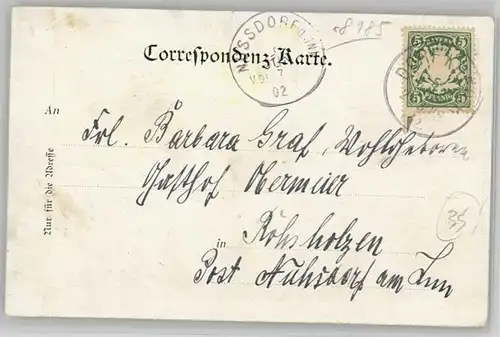 8185
Correspondenz-Karte.
NUSSDORF
02
BAYERN
5 5
PFENNIG
An
Frl. Barbara Graf, Wohlgeboren
Gasthof Obermair
in Rohrholzen
Post Nußdorf am Inn
Nur für die Adresse
35